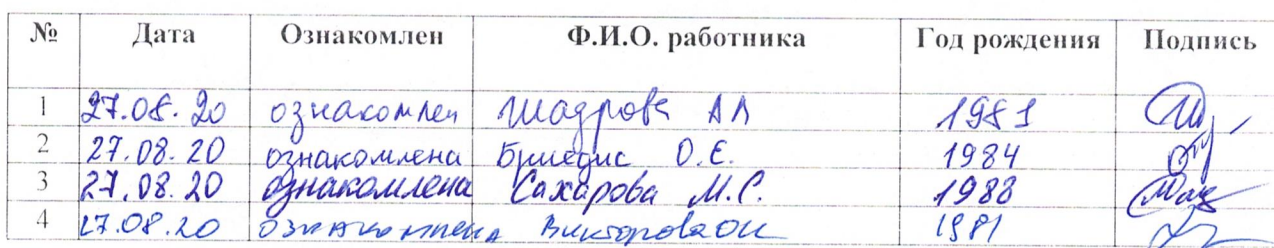 № Дата Ознакомлен Ф.И.О. работника Год рождения Подпись
1 27.08.20 ознакомлен Шадрова АА 1981
2 27.08.20 ознакомлена Бриедис О.Е. 1984
3 27.08.20 ознакомлена Сахарова М.С. 1988
4 27.08.20 ознакомлена Викторова ОК 1981